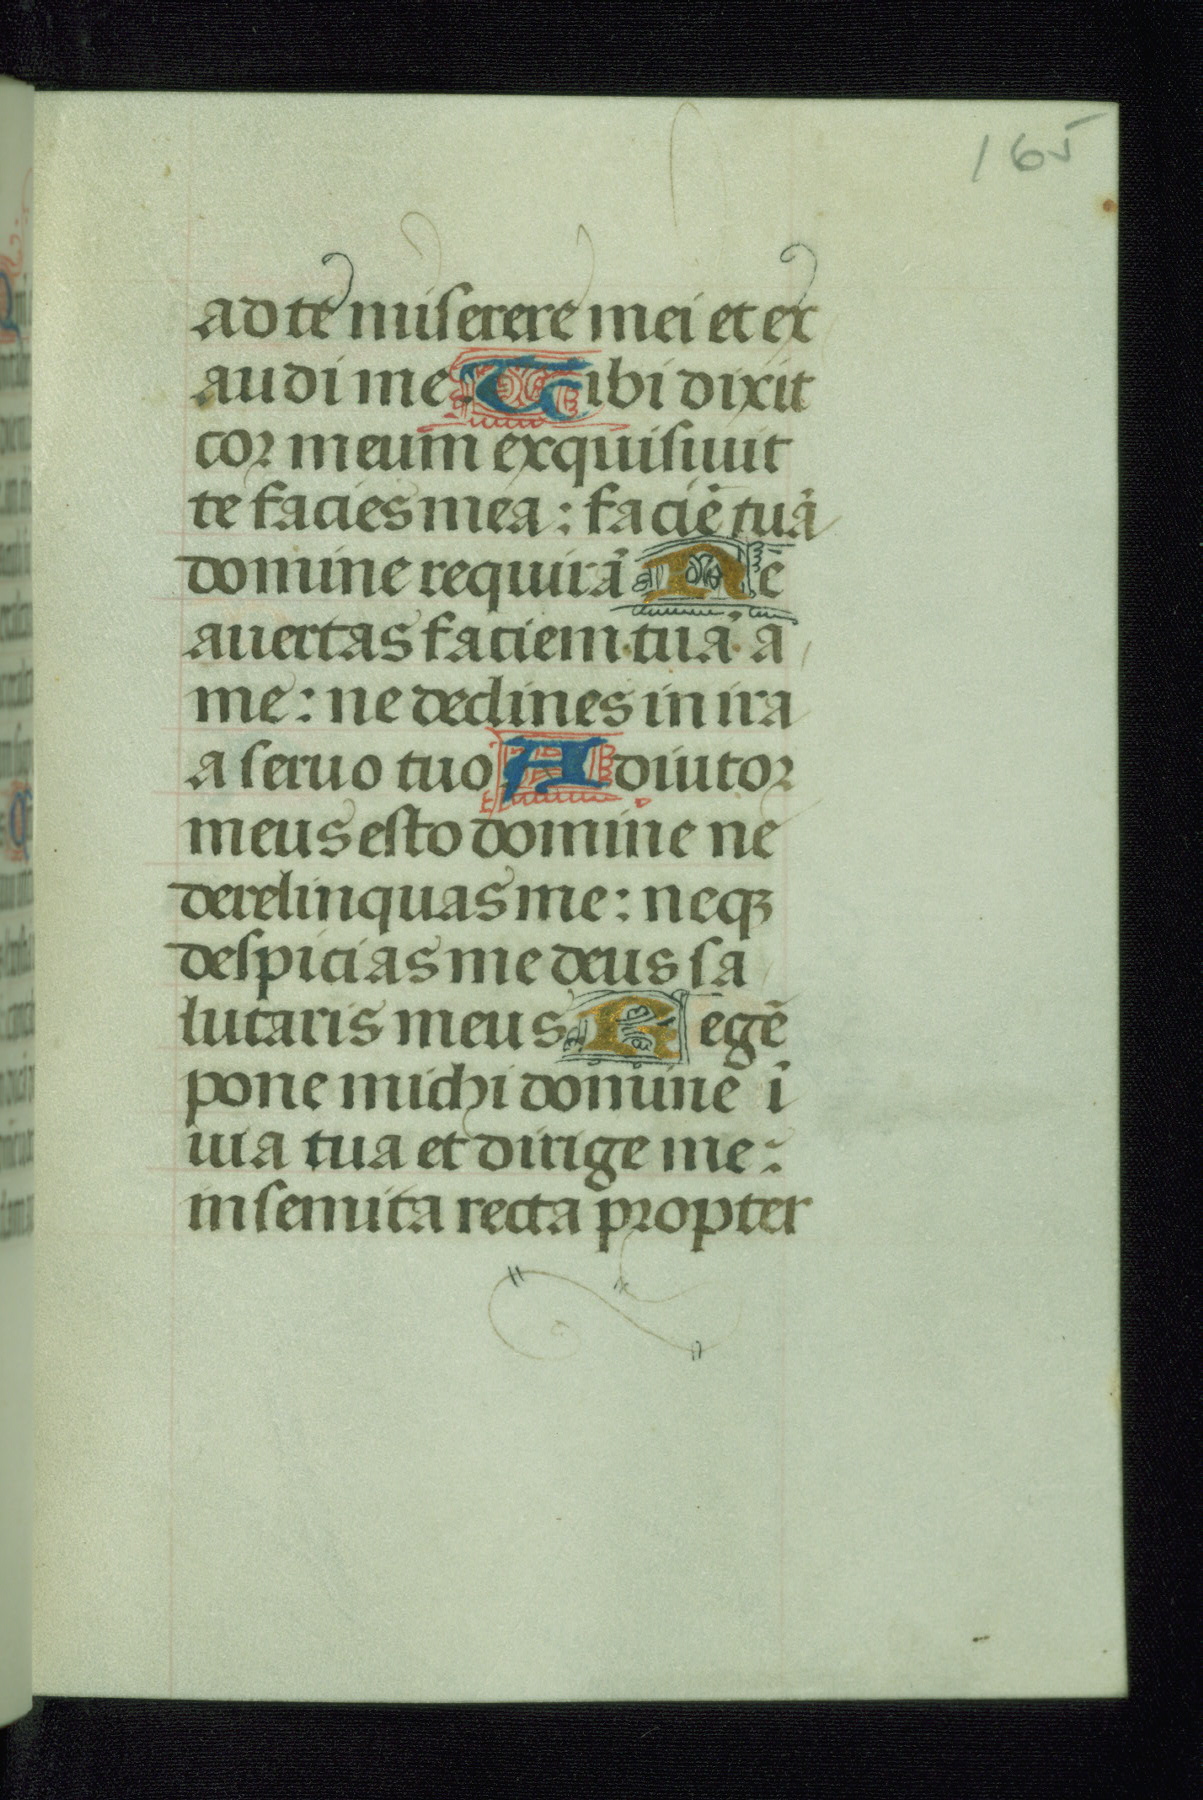 165
ad te miserere mei et ex
audi me. Tibi dixit
cor meum exquisiuit
te facies mea : faciē tuā
domine requirā Ne
auertas faciem tuā a
me : ne declines in ira
a seruo tuo Adiutor
meus esto domine ne
derelinquas me : neqꝫ
despicias me deus sa
lutaris meus Legē
pone michi domine ī
uia tua et dirige me :
in semita recta propter